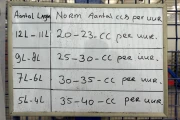 Aantal Lagen Norm Aantal ccb per uur
12L - 11L 20-23-CC per uur.
9L-8L 25-30-CC per uur.
7L-6L 30-35-CC per uur.
5L-4L 35-40-CC per uur.